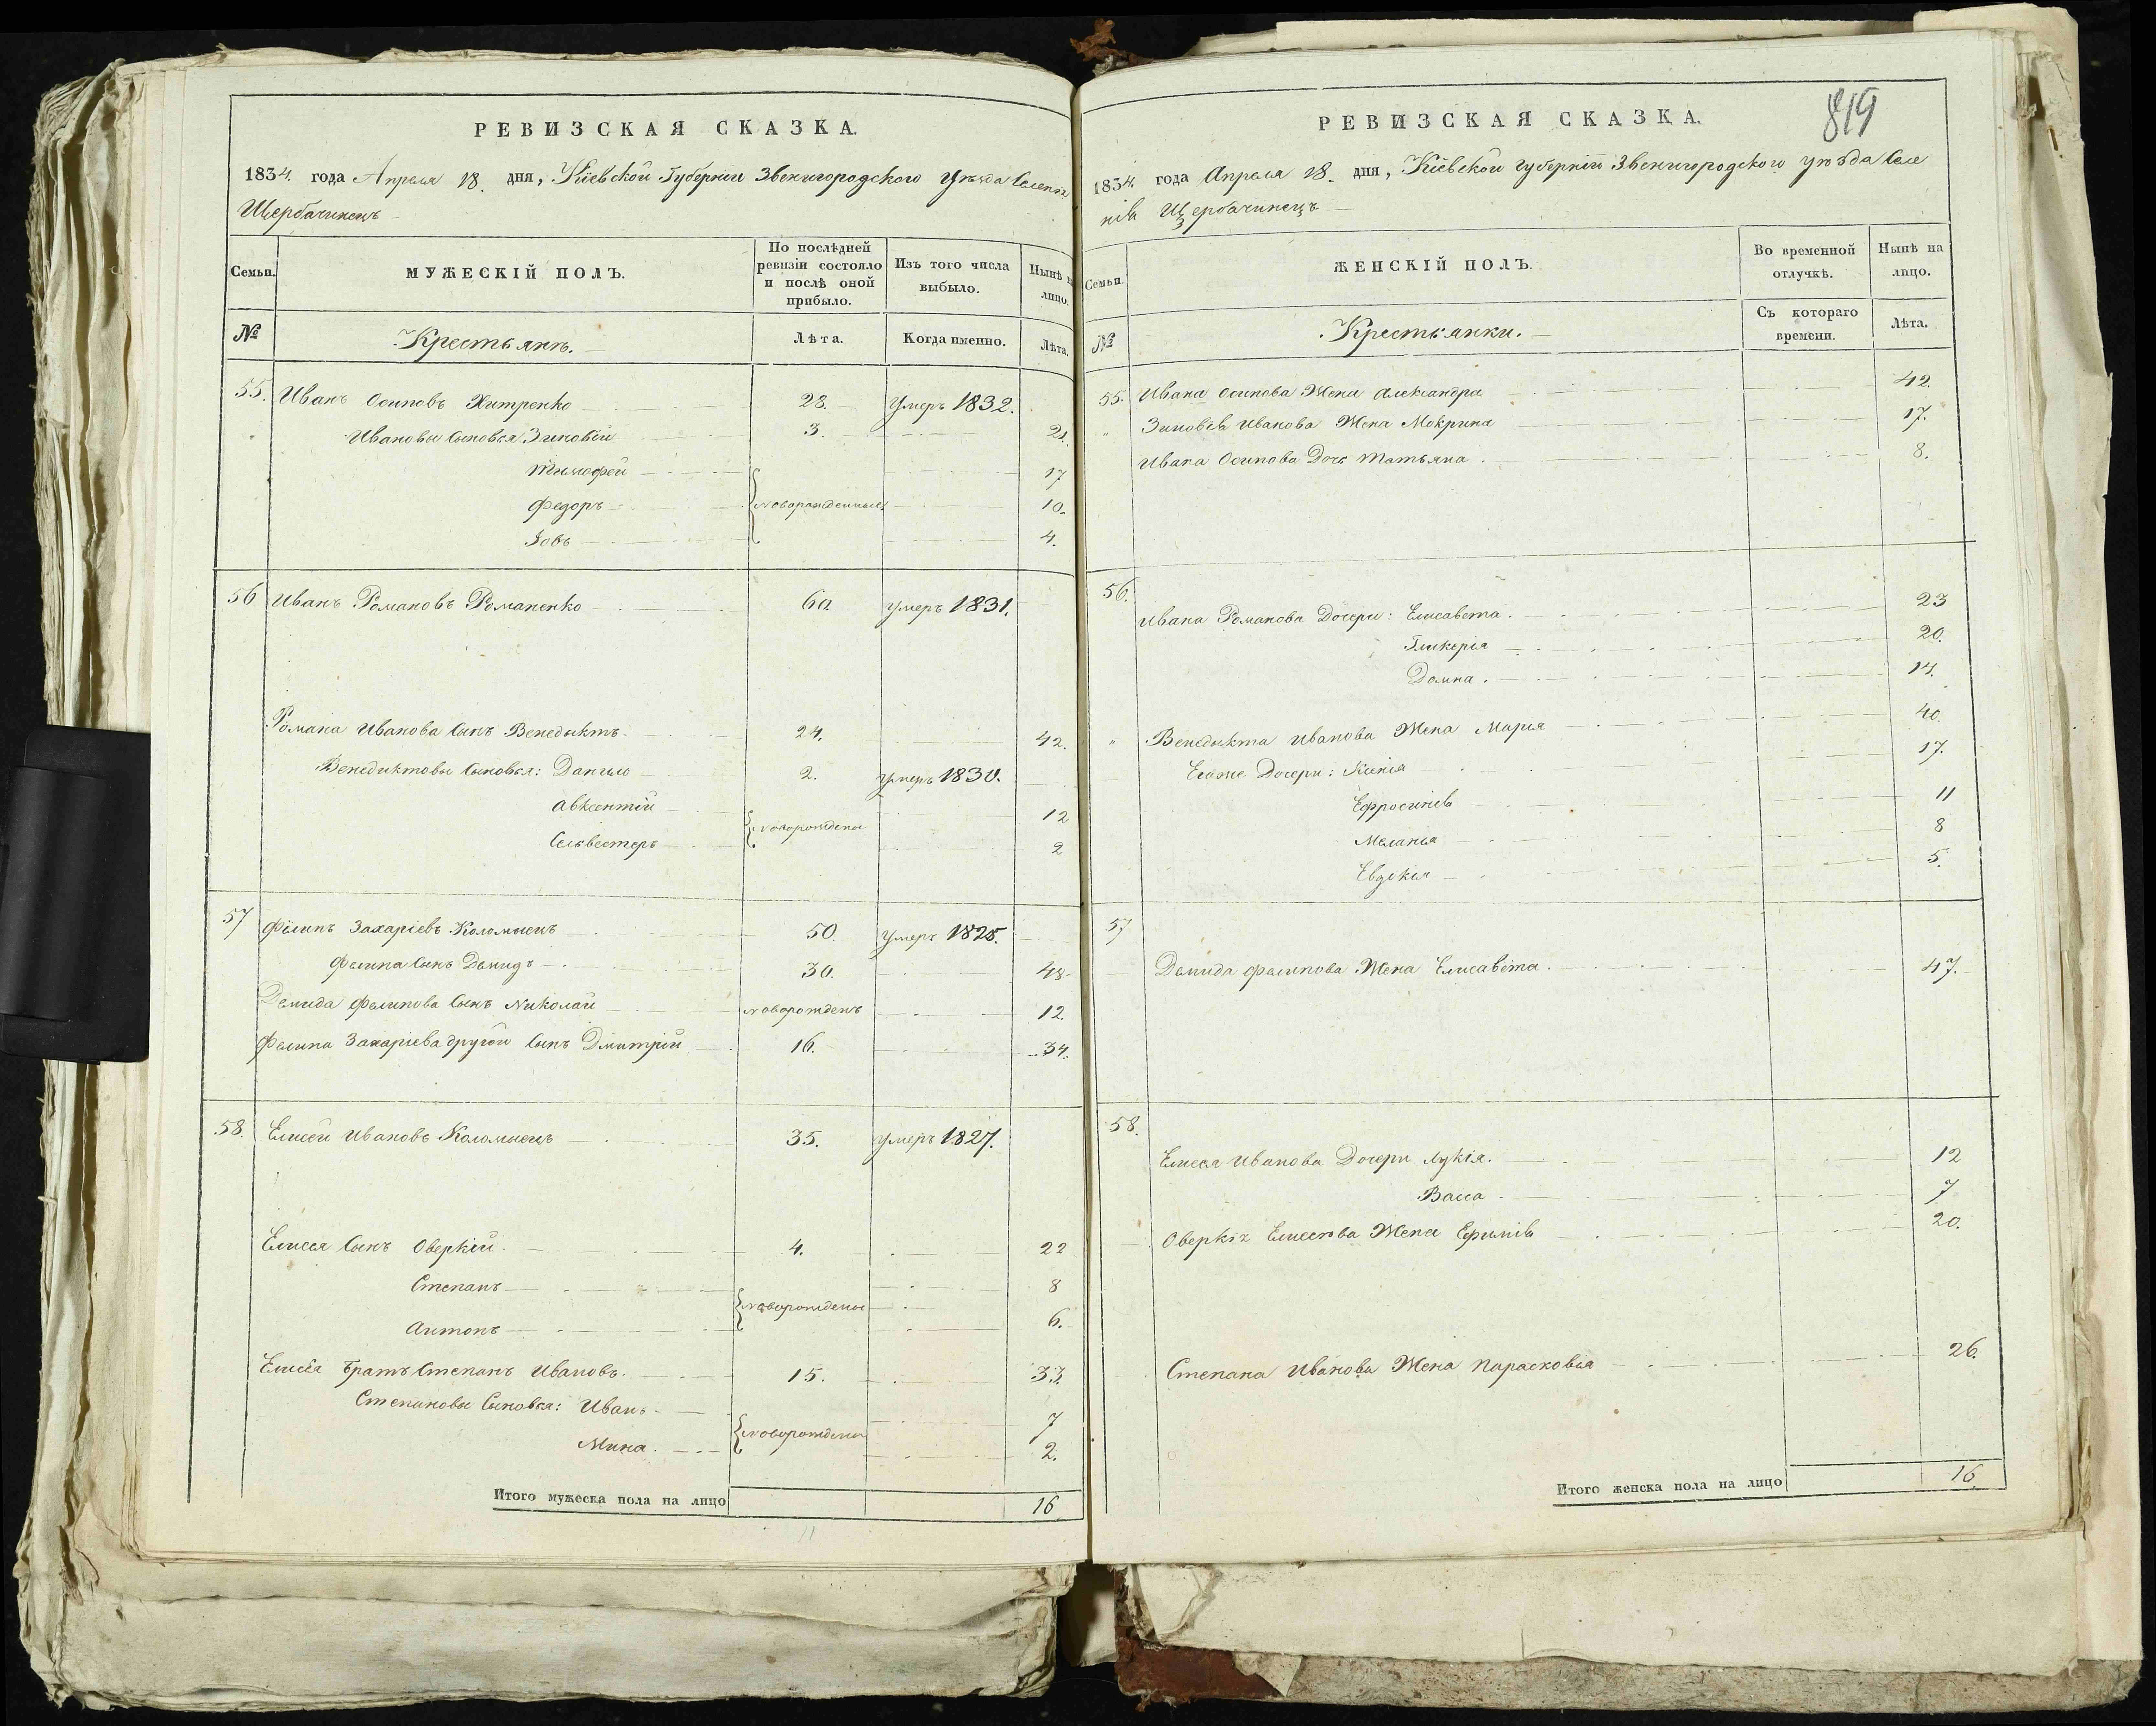 РЕВИЗСКАЯ СКАЗКА.
1834. года Апреля 18. дня, Кіевской Губерніи Звенигородского Уѣзда Селенія
Щербачинецъ
Семьи.
МУЖЕСКІЙ ПОЛЪ.
По послѣдней ревизіи состояло и послѣ оной прибыло.
Изъ того числа выбыло.
Нынѣ на лицо.
№
Крестьянъ.
Лѣта.
Когда именно.
Лѣта.
55. Иванъ Осиповъ Хитренко 28. Умеръ 1832.
Ивановы Сыновья Зиновій 3. 21.
Тимофей 17
Федоръ Новорожденные 10.
Іовъ 4.
56 Иванъ Романовъ Романенко 60. умеръ 1831.
Романа Иванова Сынъ Венедыктъ 24. 42.
Венедиктовы Сыновья: Данило 2. умеръ 1830.
Авксентій 12
Новорождены
Селвестеръ 2
57 Филипъ Захаріевъ Коломиецъ 50. Умеръ 1825.
Филипа Сынъ Демидъ 30. 48.
Демида Филипова Сынъ Николай новорожденъ 12.
Филипа Захаріева другой Сынъ Дмитрій 16. 34.
58. Елисей Ивановъ Коломиецъ 35. умеръ 1827.
Елисея Сынъ Оверкій 4. 22
Степанъ 8
Новорождены
Антонъ 6.
Елисея братъ Степанъ Ивановъ 15. 33.
Степановы Сыновья: Иванъ 7
Новорождены
Мина 2.
Итого мужеска пола на лицо 16.
819
РЕВИЗСКАЯ СКАЗКА.
1834. года Апреля 18. дня, Кіевской Губерніи Звенигородского уѣзда Селе
нія Щербачинецъ
Семьи.
ЖЕНСКІЙ ПОЛЪ.
Во временной отлучкѣ.
Нынѣ на лицо.
№
Крестьянки.
Съ котораго времени.
Лѣта.
55. Ивана Осипова Жена Александра 42.
" Зиновія Иванова Жена Мокрина 17.
Ивана Осипова Дочь Татьяна 8.
56.
Ивана Романова Дочери: Елисавета 23
Гликерія 20.
Домна 14.
" Венедыкта Иванова Жена Марія 40.
Егоже Дочери: Ксенія 17.
Ефросинія 11
Меланія 8
Евдокія 5.
57
Демида Филипова Жена Елисавета. 47.
58.
Елисея Иванова Дочери Лукія. 12
Васса 7
Оверкія Елисеева Жена Ефимія 20.
Степана Иванова Жена Парасковія 26.
Итого женска пола на лицо 16.